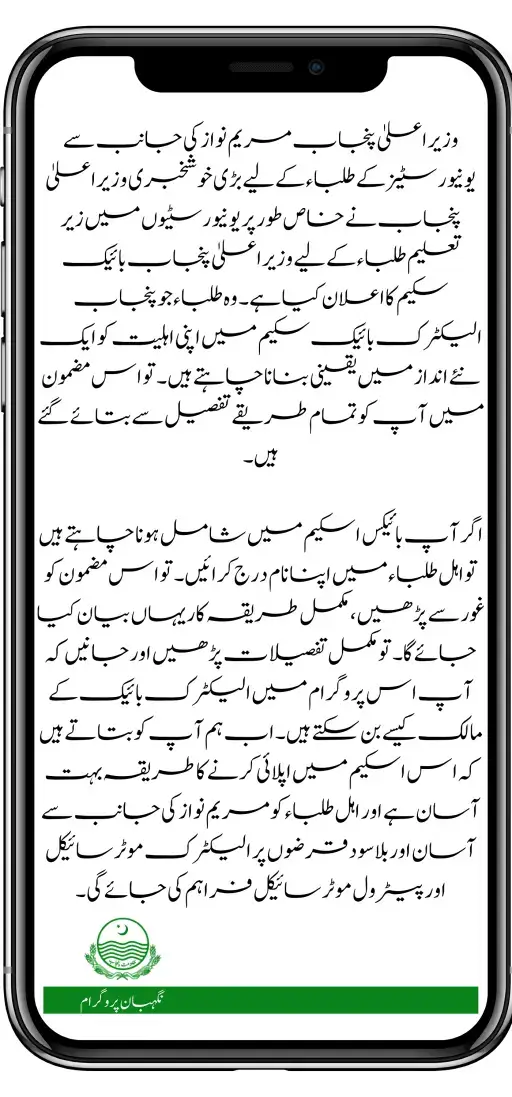 وزیر اعلیٰ پنجاب مریم نواز کی جانب سے
یونیورسٹیز کے طلباء کے لیے بڑی خوشخبری وزیر اعلیٰ
پنجاب نے خاص طور پر یونیورسٹیوں میں زیر
تعلیم طلباء کے لیے وزیر اعلیٰ پنجاب بائیک
سکیم کا اعلان کیا ہے۔ وہ طلباء جو پنجاب
الیکٹرک بائیک سکیم میں اپنی اہلیت کو ایک
نئے انداز میں یقینی بنانا چاہتے ہیں۔ تو اس مضمون
میں آپ کو تمام طریقے تفصیل سے بتائے گئے
ہیں۔
اگر آپ بائیکس اسکیم میں شامل ہونا چاہتے ہیں
تو اہل طلباء میں اپنا نام درج کرائیں۔ تو اس مضمون کو
غور سے پڑھیں، مکمل طریقہ کار یہاں بیان کیا
جائے گا۔ تو مکمل تفصیلات پڑھیں اور جانیں کہ
آپ اس پروگرام میں الیکٹرک بائیک کے
مالک کیسے بن سکتے ہیں۔ اب ہم آپ کو بتاتے ہیں
کہ اس اسکیم میں اپلائی کرنے کا طریقہ بہت
آسان ہے اور اہل طلباء کو مریم نواز کی جانب سے
آسان اور بلاسود قرضوں پر الیکٹرک موٹر سائیکل
اور پیٹرول موٹر سائیکل فراہم کی جائے گی۔
نگہبان پروگرام